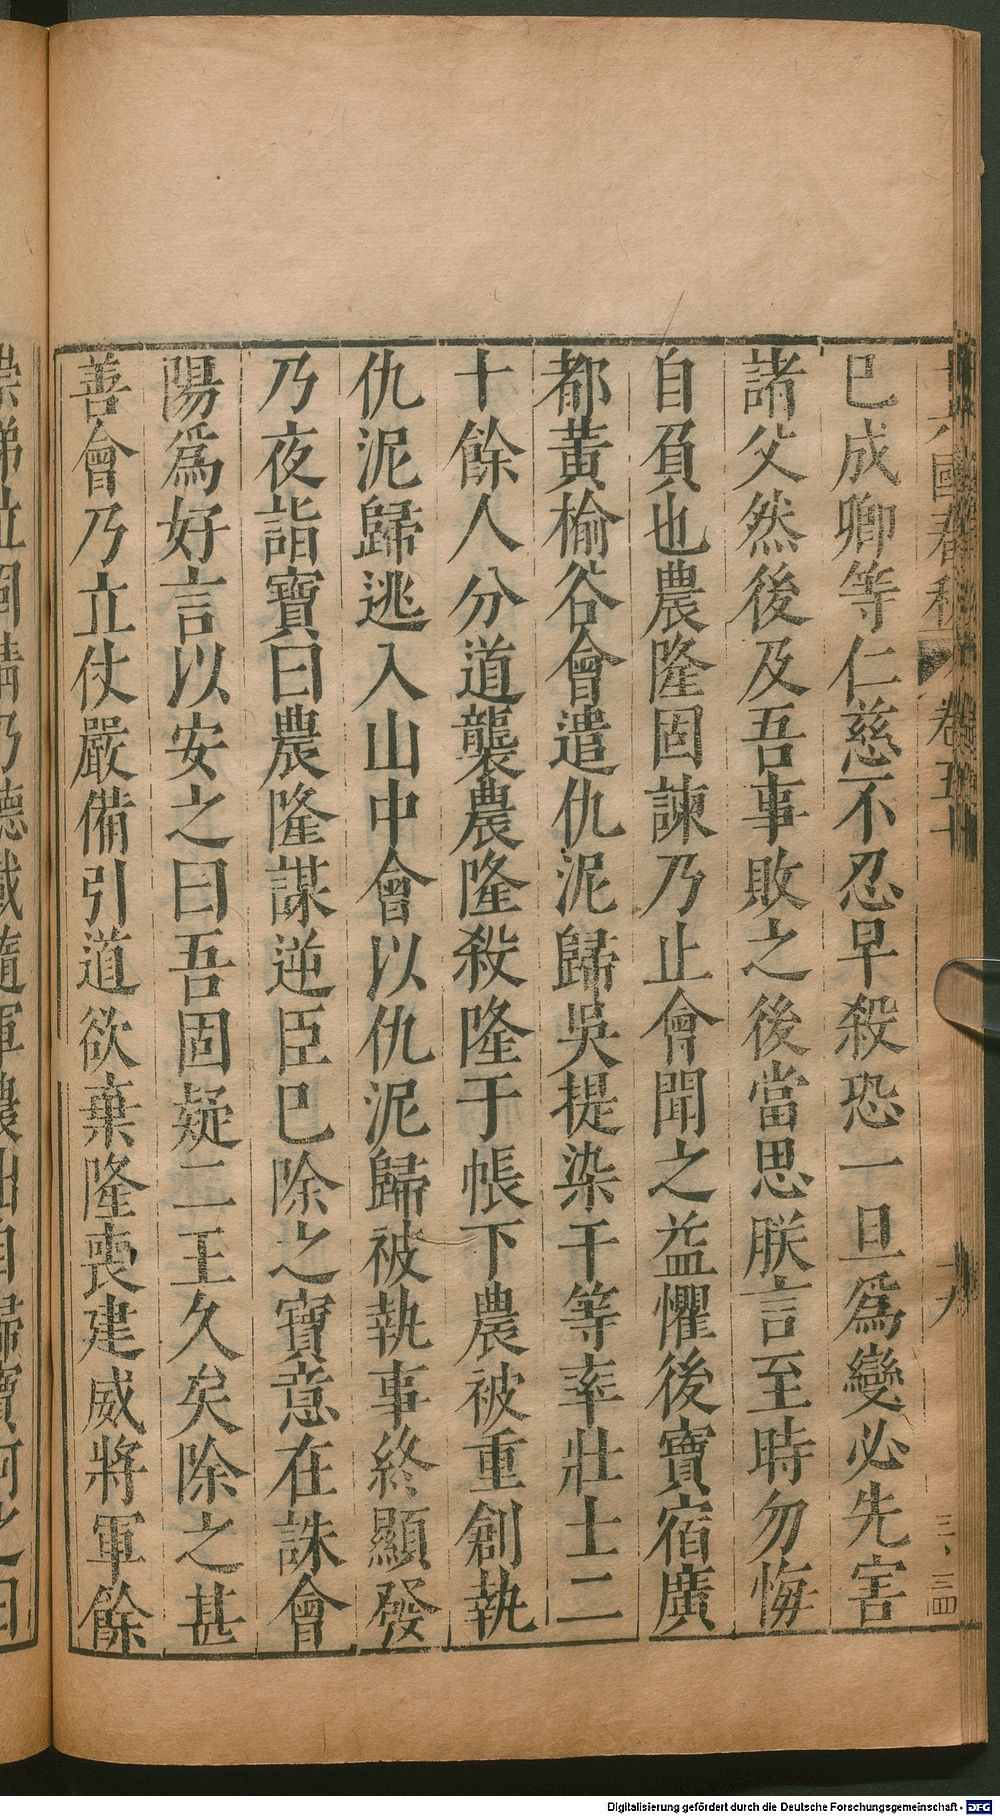 已成卿等仁慈不忍早殺恐一旦爲變必先害
諸父然後及吾事敗之後當思朕言至時勿悔
自負也農隆固諫乃止會聞之益懼後寶宿廣
都黃榆谷會遣仇泥歸吳提染干等率壯士二
十餘人分道襲農隆殺隆于帳下農被重創執
仇泥歸逃入山中會以仇泥歸被執事終顯發
乃夜詣寶曰農隆謀逆臣已除之寶意在誅會
陽爲好言以安之曰吾固疑二王久矣除之甚
善會乃立仗嚴備引道欲棄隆喪建威將軍餘
Digitalisierung gefördert durch die Deutsche Forschungsgemeinschaft - DFG